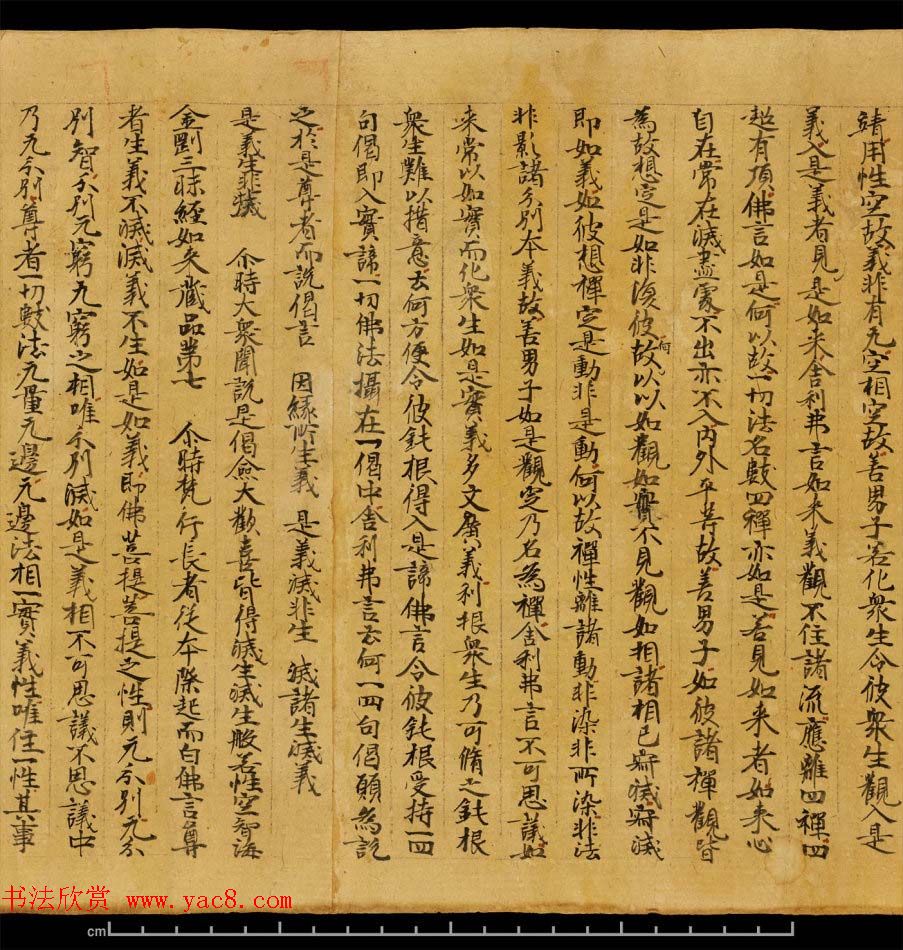 靖用性空故義非有无空相空故善男子若化衆生令彼衆生觀入是
義入是義者見是如来舍利弗言如来義觀不住諸流應離四禪而
超有頂佛言如是何以故一切法名數四禪亦如是若見如来者如来心
自在常在滅盡處不出亦不入内外平等故善男子如彼諸禪觀皆
為故想定是如非復彼何故以以如觀如實不見觀如相諸相已寂滅寂滅
即如義如彼想禪定是動非是動何以故禪性離諸動非染非所染非法
非影諸分別本義故善男子如是觀定乃名為禪舍利弗言不可思議如
来常以如實而化衆生如是實義多文廣義利根衆生乃可脩之鈍根
衆生難以措意云何方便令彼鈍根得入是諦佛言令彼鈍根受持一四
句偈即入實諦一切佛法攝在一偈中舍利弗言云何一四句偈願為説
之於是尊者而説偈言 因緣所生義 是義滅非生 滅諸生滅義
是義生非滅 尒時大衆聞説是偈僉大歡喜皆得滅生滅生般若性空智海
金剛三昧經如来藏品第七 尒時梵行長者從本際起而白佛言尊
者生義不滅滅義不生如是如義即佛菩提菩提之性則无分別无分
別智分別无窮无窮之相唯分別滅如是義相不可思議不思議中
乃无分別尊者一切數法无量无邊无邊法相一實義性唯住一性其事
书法欣赏 www.yac8.com
cm